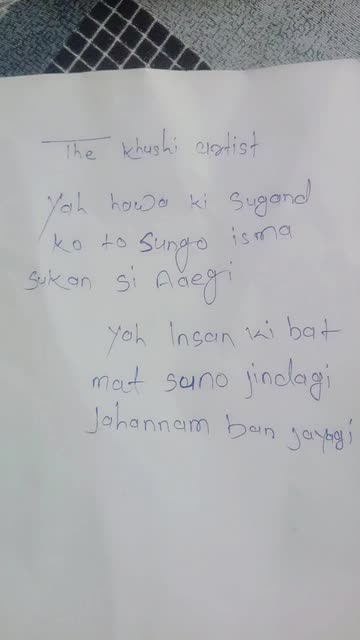 The khushi artist
Yah hawa ki Sugand
ko to Sungo isma
sukan si Aaegi
yah Insan ki bat
mat suno jindagi
Jahannam ban jayagi